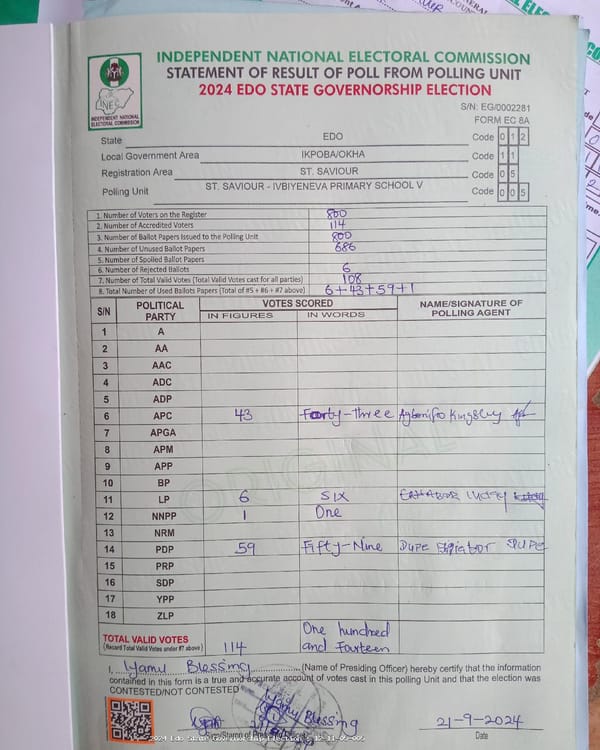 INDEPENDENT NATIONAL ELECTORAL COMMISSION
STATEMENT OF RESULT OF POLL FROM POLLING UNIT
2024 EDO STATE GOVERNORSHIP ELECTION
INEC
INDEPENDENT NATIONAL
ELECTORAL COMMISSION
S/N: EG/0002281
FORM EC 8A
State EDO Code 0 1 2
Local Government Area IKPOBA/OKHA Code 1 1
Registration Area ST. SAVIOUR Code 0 5
Polling Unit ST. SAVIOUR - IVBIYENEVA PRIMARY SCHOOL V Code 0 0 5
1. Number of Voters on the Register 800
2. Number of Accredited Voters 114
3. Number of Ballot Papers Issued to the Polling Unit 800
4. Number of Unused Ballot Papers 686
5. Number of Spoiled Ballot Papers
6. Number of Rejected Ballots 6
7. Number of Total Valid Votes (Total Valid Votes cast for all parties) 108
8. Total Number of Used Ballots Papers (Total of #5 + #6 + #7 above) 6+43+59+1
S/N POLITICAL PARTY VOTES SCORED NAME/SIGNATURE OF POLLING AGENT
IN FIGURES IN WORDS
1 A
2 AA
3 AAC
4 ADC
5 ADP
6 APC 43 Forty-three Kingsley
7 APGA
8 APM
9 APP
10 BP
11 LP 6 SIX
12 NNPP 1 One
13 NRM
14 PDP 59 Fifty-Nine DUPE
15 PRP
16 SDP
17 YPP
18 ZLP
ORIGINAL
TOTAL VALID VOTES
(Record Total Valid Votes under #7 above) 114 One hundred and Fourteen
I, Iyamu Blessing (Name of Presiding Officer) hereby certify that the information
contained in this form is a true and accurate account of votes cast in this polling Unit and that the election was
CONTESTED/NOT CONTESTED
Iyamu Blessing
21-9-2024
Date